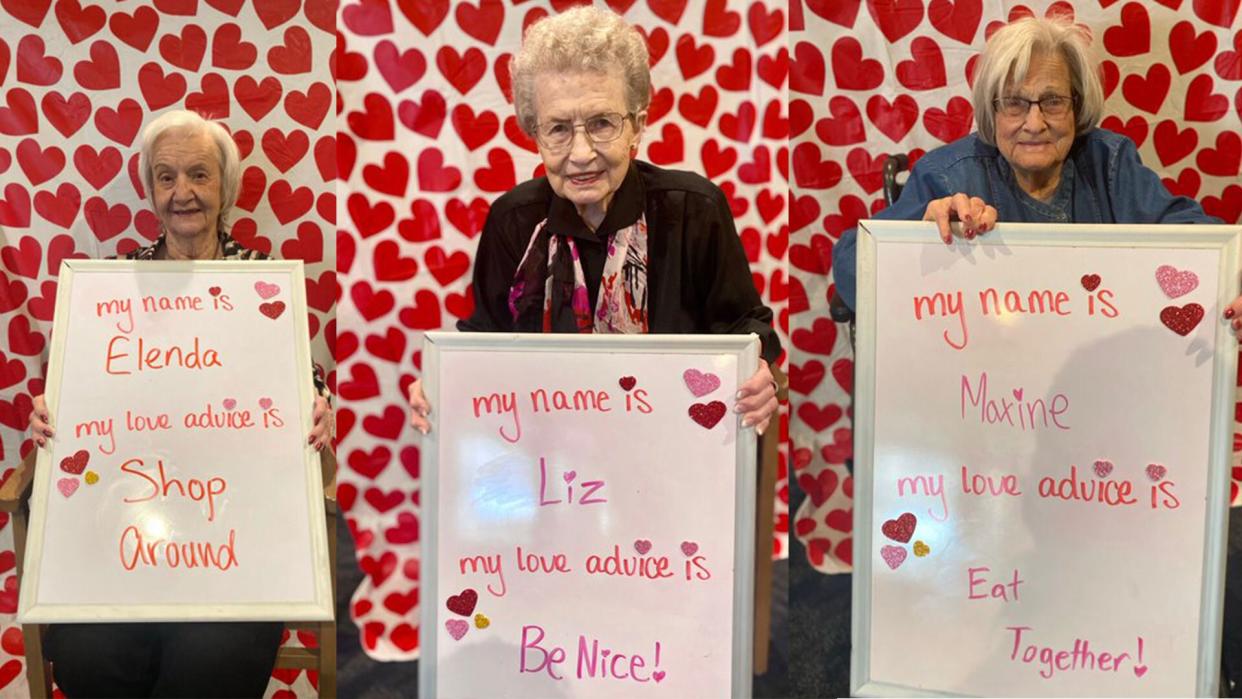 my name is
Elenda
my love advice is
Shop
Around
my name is
Liz
my love advice is
Be Nice!
my name is
Maxine
my love advice is
Eat
Together!